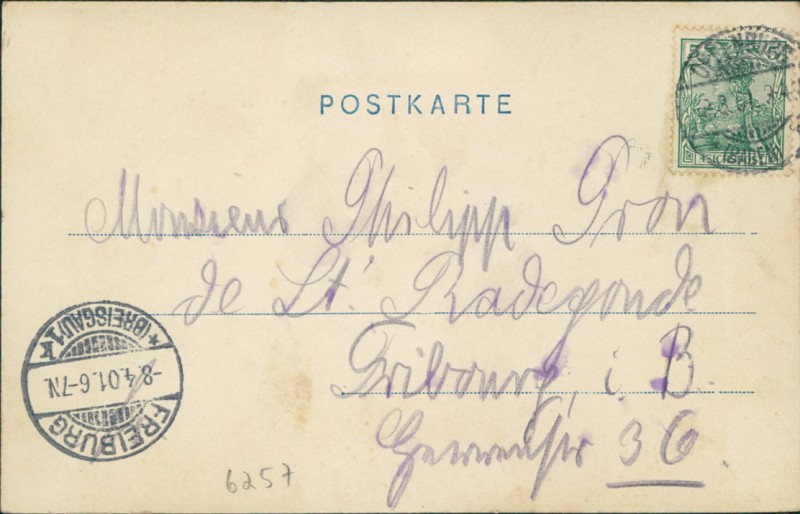 POSTKARTE
5 5
REICHSPOST
Monsieur Philipp Gron
de St. Radegonde
Fribourg, i. B.
Herrenstr 36.
FREIBURG
-8.4.01.6-7N.
* (BREISGAU) 1 *
6257